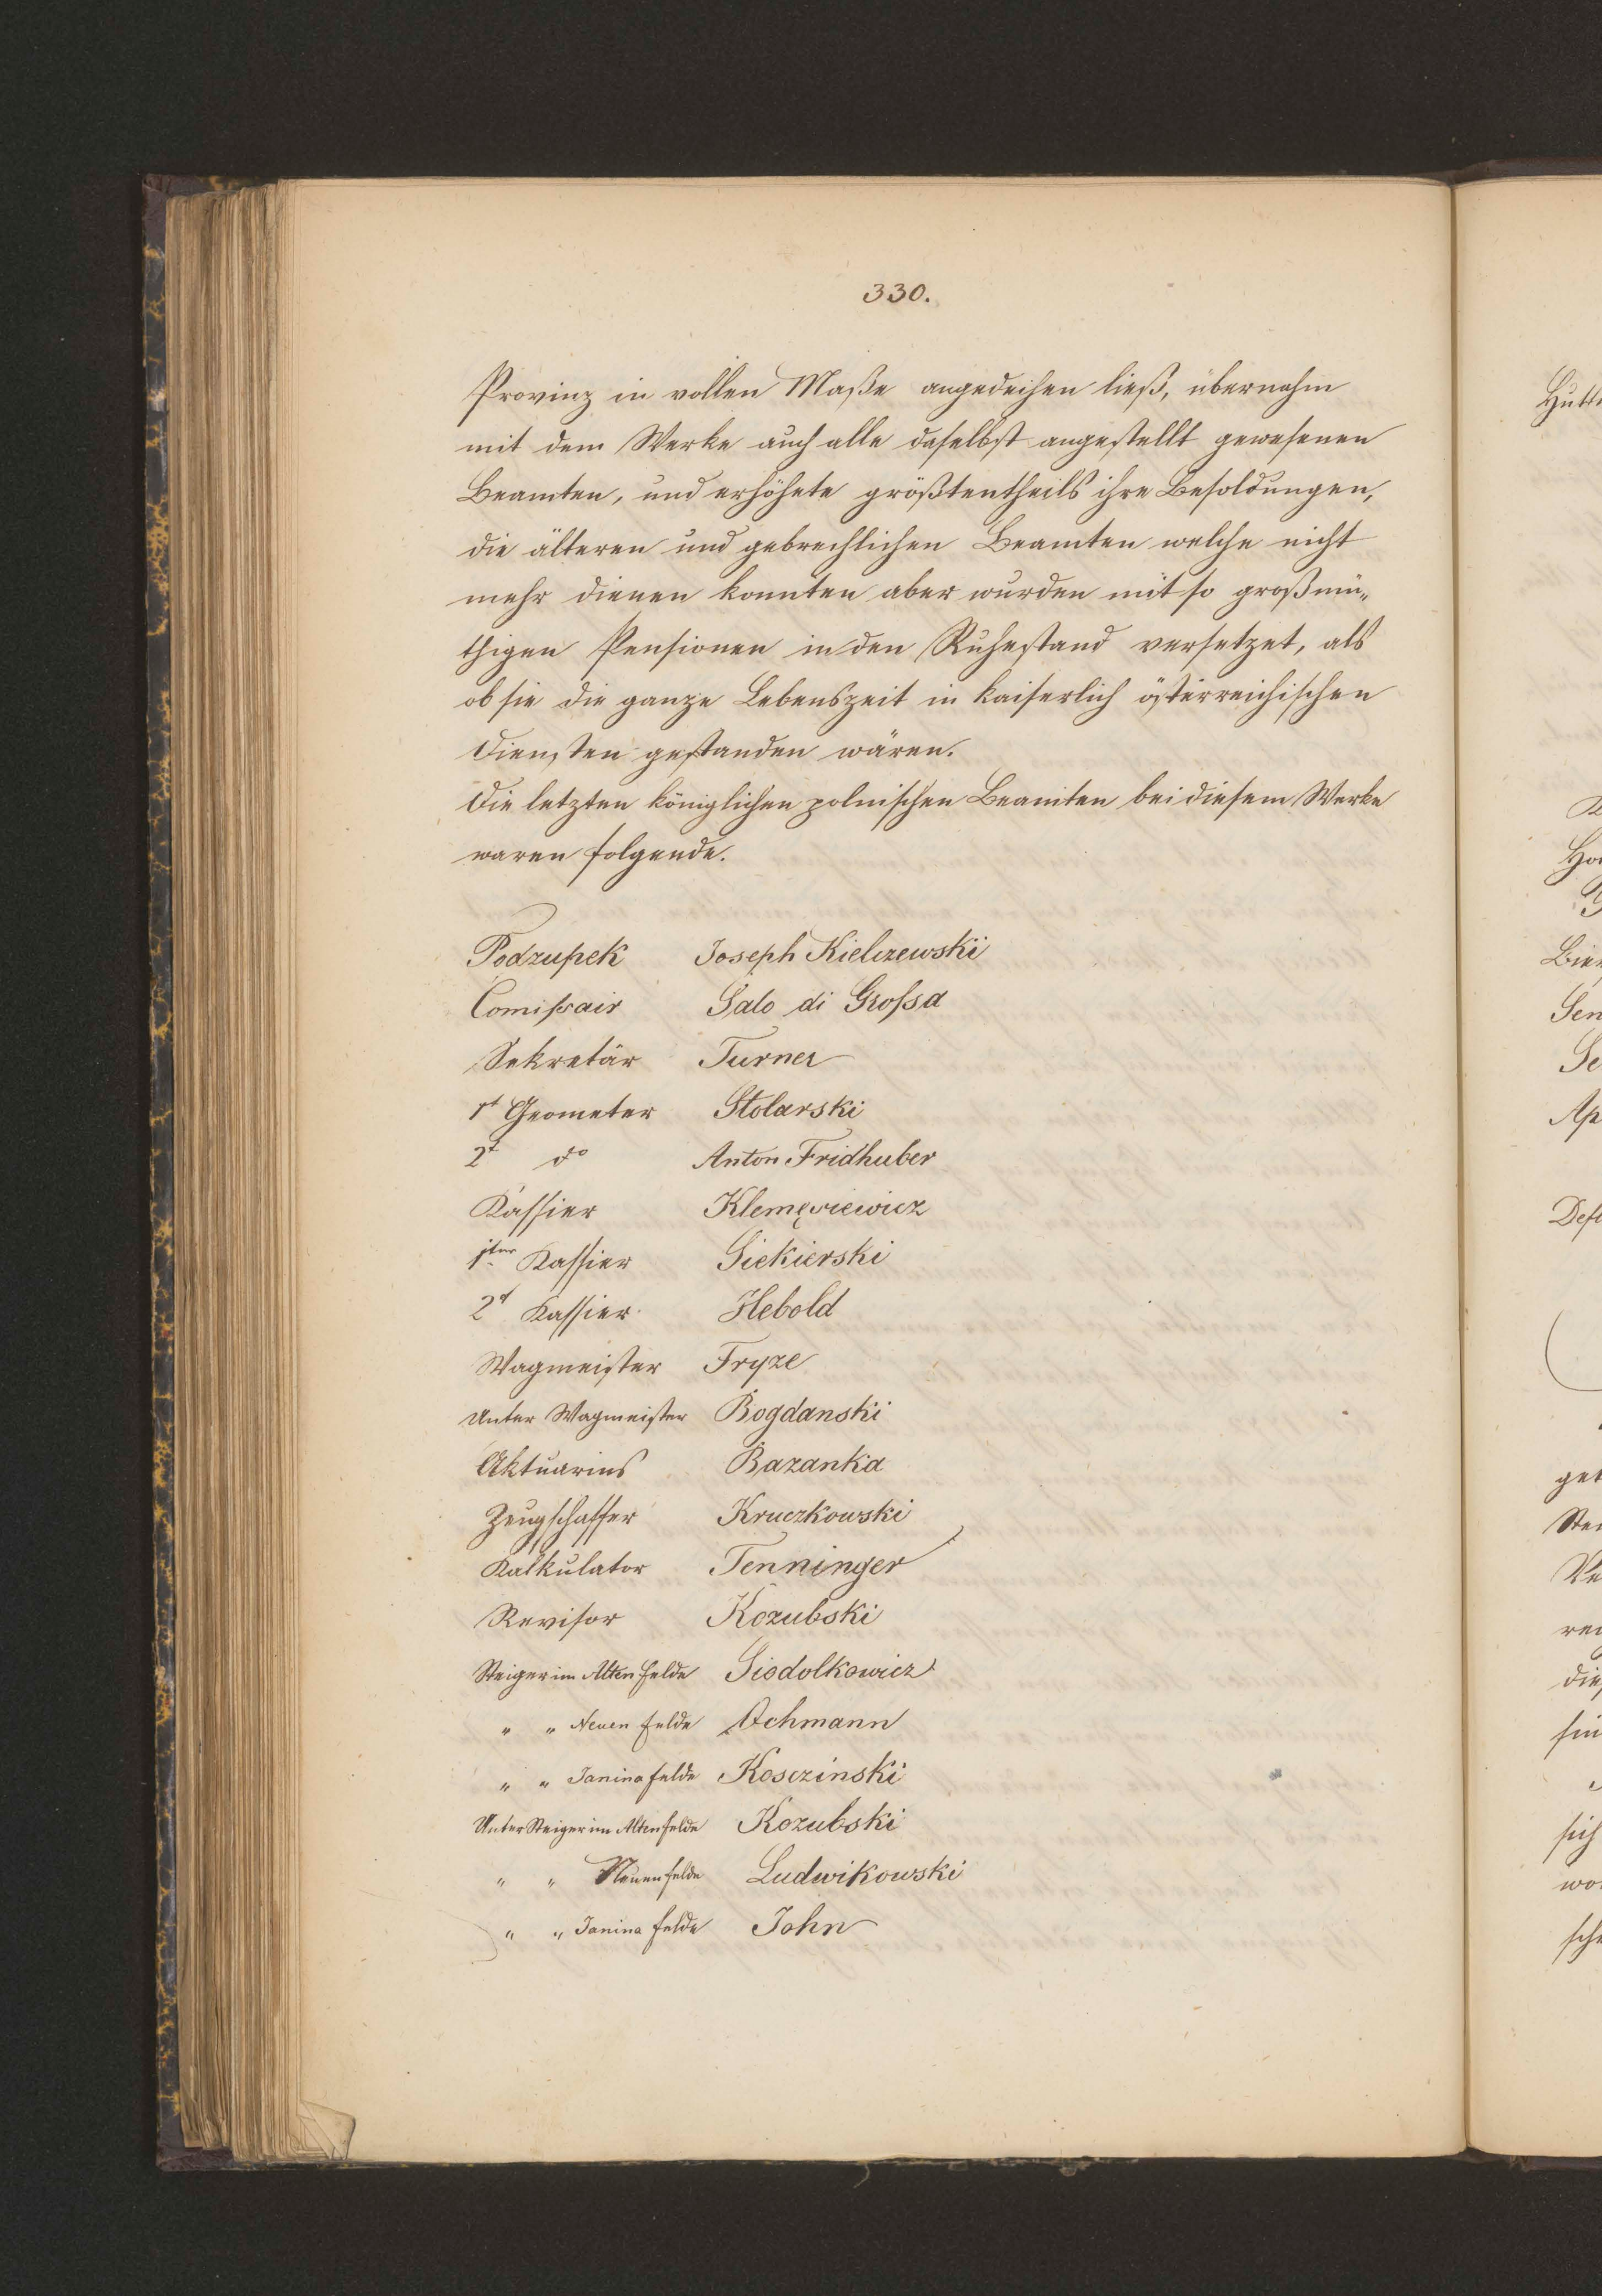 330.
Provinz in vollen Maße angedeihen ließ, übernahm
mit dem Werke auch alle daselbst angestellt gewesenen
Beamten, und erhöhete größtentheils ihre Besoldungen,
die älteren und gebrechlichen Beamten welche nicht
mehr dienen konnten aber wurden mit so großmü„
thigen Pensionen in den Ruhestand versetzet, als
ob sie die ganze Lebenszeit in kaiserlich österreichischen
Diensten gestanden wären.
Die letzten königlichen polnischen Beamten bei diesem Werke
waren folgende.
Podzupek Joseph Kielczewski
Comißair Salo di Großa
Sekretär Turner
1t Geometer Stolarski
2t do Anton Fridhuber
Kassier Klemęsiewicz
1ter Kassier Siekierski
2t Kassier Hebold
Wagmeister Fryze
Unter Wagmeister Bogdanski
Aktuarius Bazanka
Zeugschaffer Kruczkowski
Kalkulator Tenninger
Revisor Kozubski
Steiger im Alten Felde Siodolkowicz
" " Neuen Felde Ochmann
" " Janina Felde Kosczinski
Unter Steiger im Altenfelde Kozubski
" " Neuenfelde Ludwikowski
" " Janina Felde John